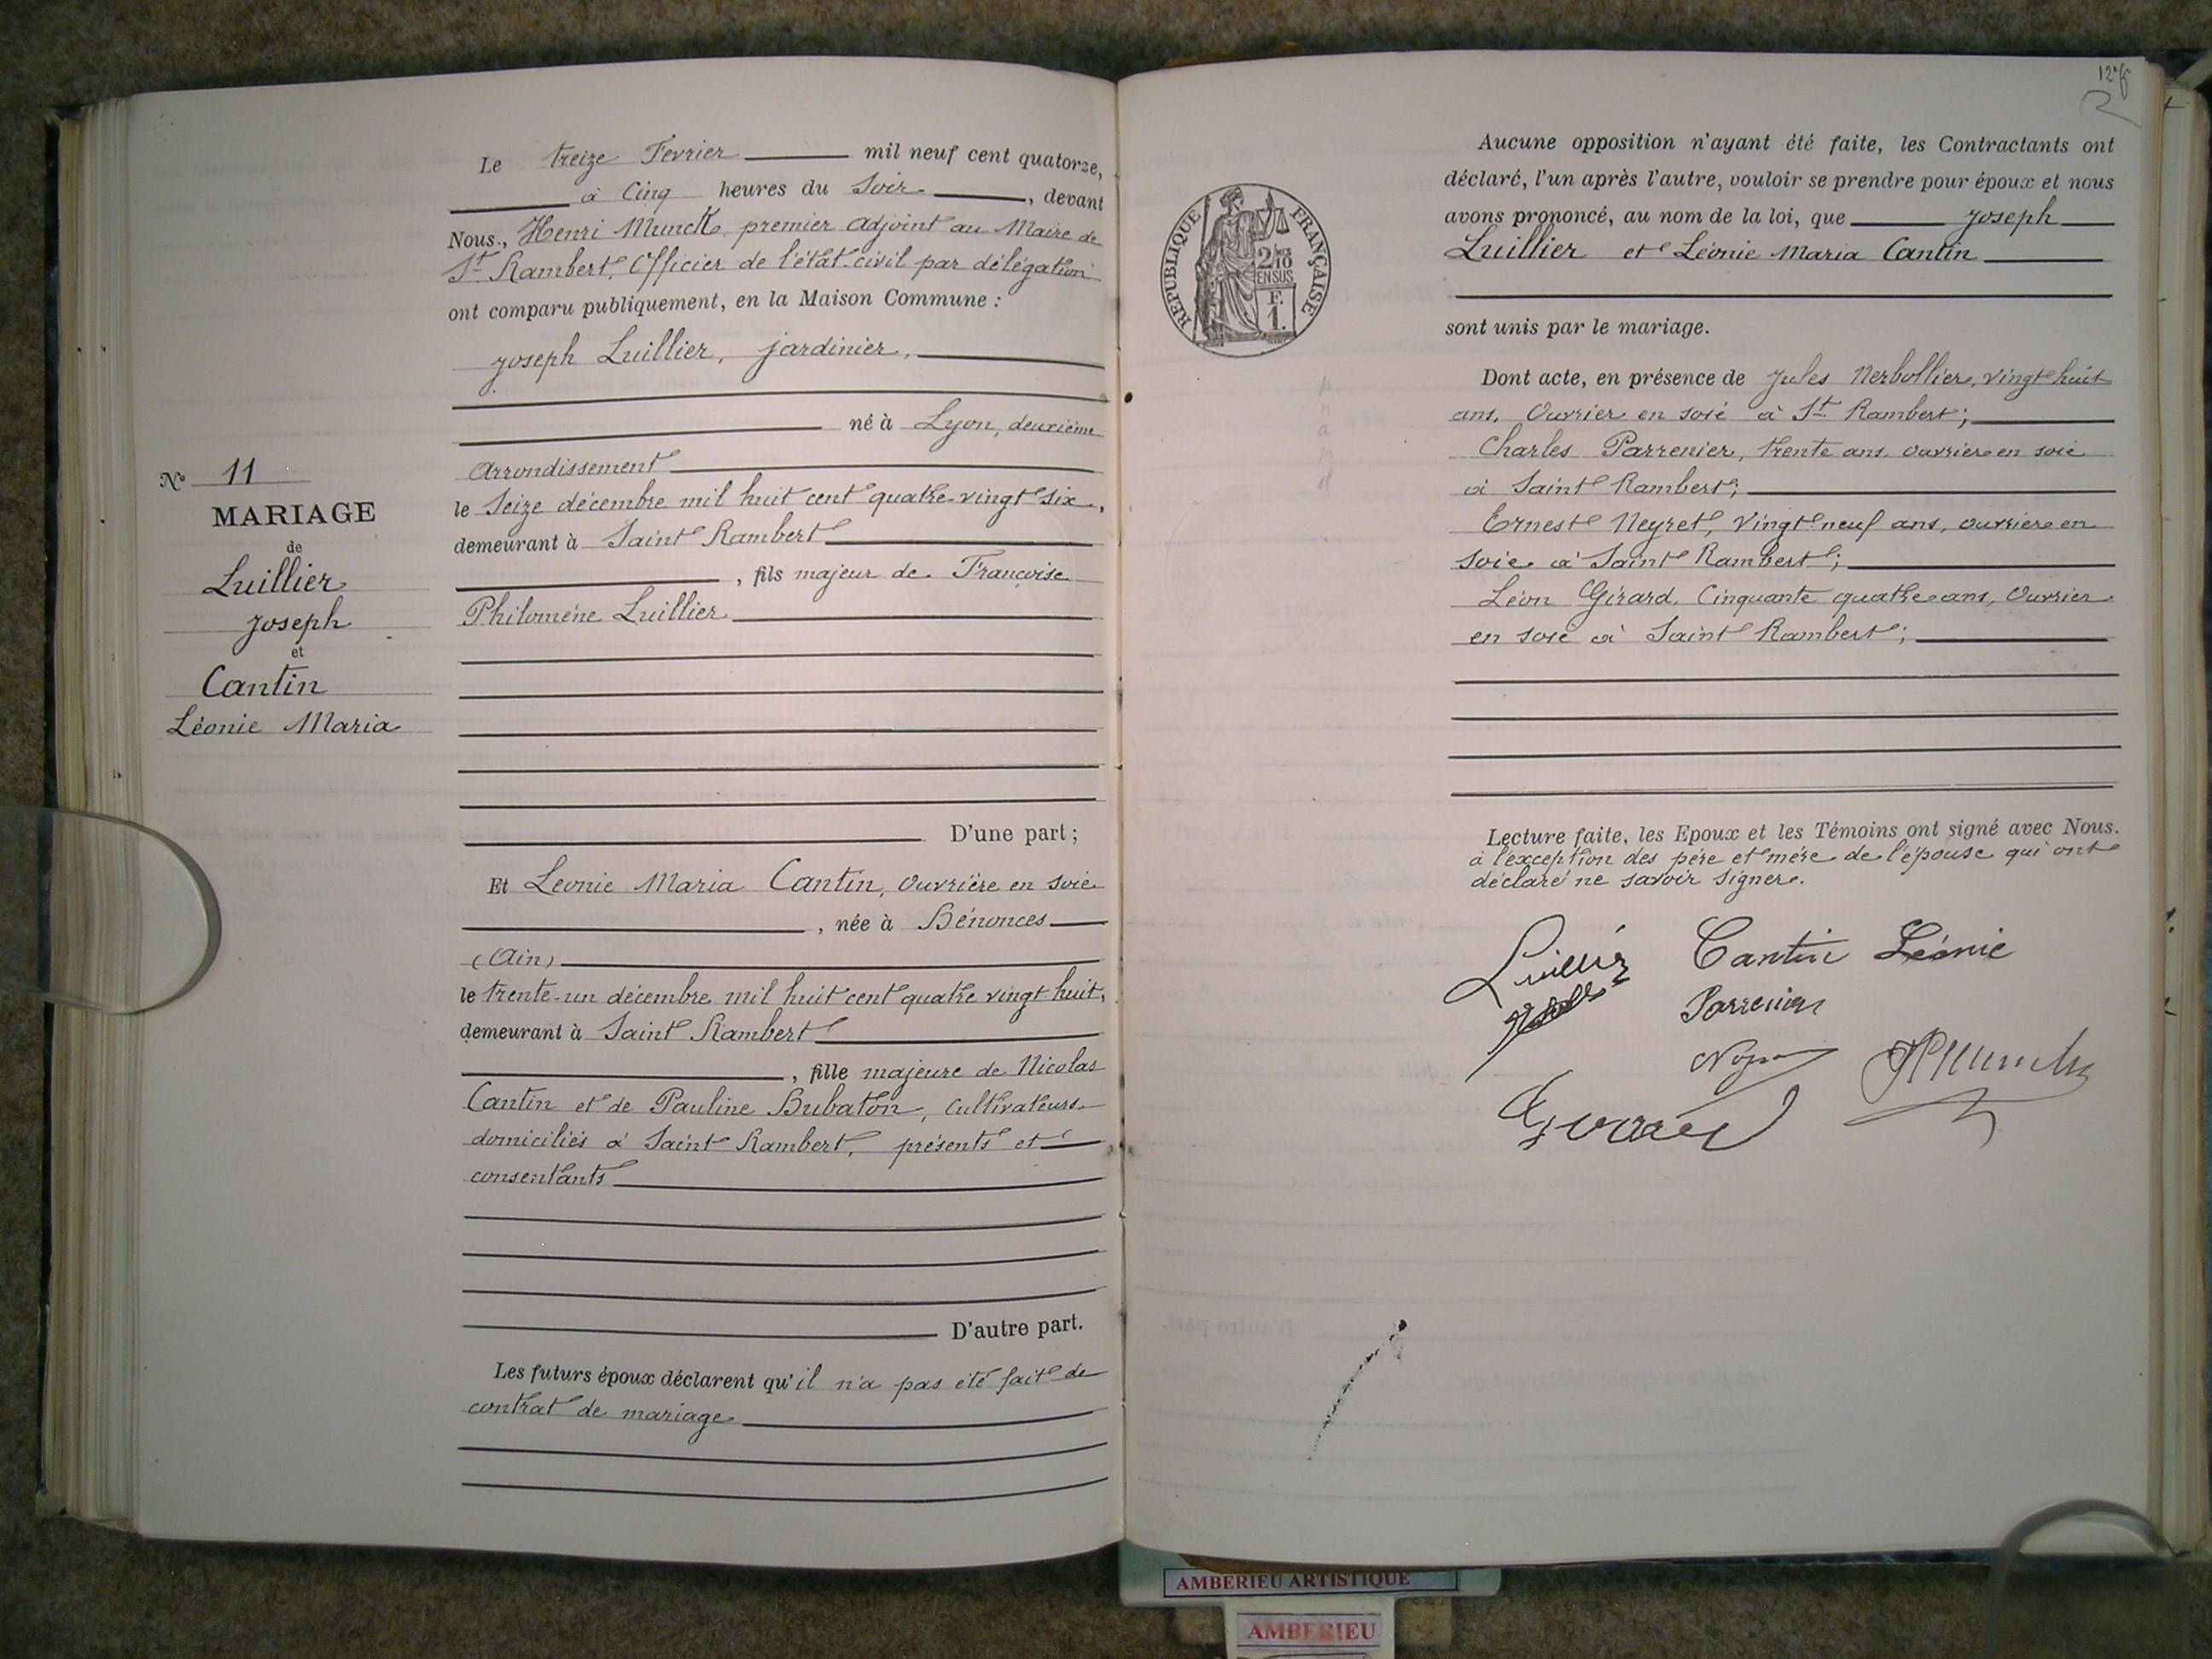 Le treize Fevrier mil neuf cent quatorze,
à Cinq heures du Soir, devant
Nous, Henri Munck, premier adjoint au Maire de
St Rambert, Officier de l'état-civil par délégation
ont comparu publiquement, en la Maison Commune :
joseph Luillier, jardinier,
né à Lyon, deuxième
Arrondissement
le Seize décembre mil huit cent quatre-vingt six,
demeurant à Saint Rambert
, fils majeur de Françoise
Philomène Luillier
No 11
MARIAGE
de
Luillier
joseph
et
Cantin
Léonie Maria
D'une part ;
Et Leonie Maria Cantin, Ouvrière en soie
, née à Bénonces
(Ain)
le trente-un décembre mil huit cent quatre vingt huit,
demeurant à Saint Rambert
, fille majeure de Nicolas
Cantin et de Pauline Bubaton, Cultivateurs
domiciliés à Saint Rambert, présents et
consentants
D'autre part.
Les futurs époux déclarent qu'il n'a pas été fait de
contrat de mariage
REPUBLIQUE FRANÇAISE
2/10
EN SUS
F.
1.
Aucune opposition n'ayant été faite, les Contractants ont
déclaré, l'un après l'autre, vouloir se prendre pour époux et nous
avons prononcé, au nom de la loi, que joseph
Luillier et Léonie Maria Cantin
sont unis par le mariage.
Dont acte, en présence de Jules Nerbollier, vingt huit
ans, Ouvrier en soie à St Rambert;
Charles Parrenier, trente ans, ouvrier en soie
à Saint Rambert;
Ernest Neyret, vingt neuf ans, ouvrier en
soie à Saint Rambert;
Léon Girard, Cinquante quatre ans, Ouvrier
en soie à Saint Rambert;
Lecture faite, les Epoux et les Témoins ont signé avec Nous.
à l'exception des père et mère de l'épouse qui ont
déclaré ne savoir signer.
Luillier Cantin Léonie
Parrenier
Girard
AMBERIEU ARTISTIQUE
AMBERIEU